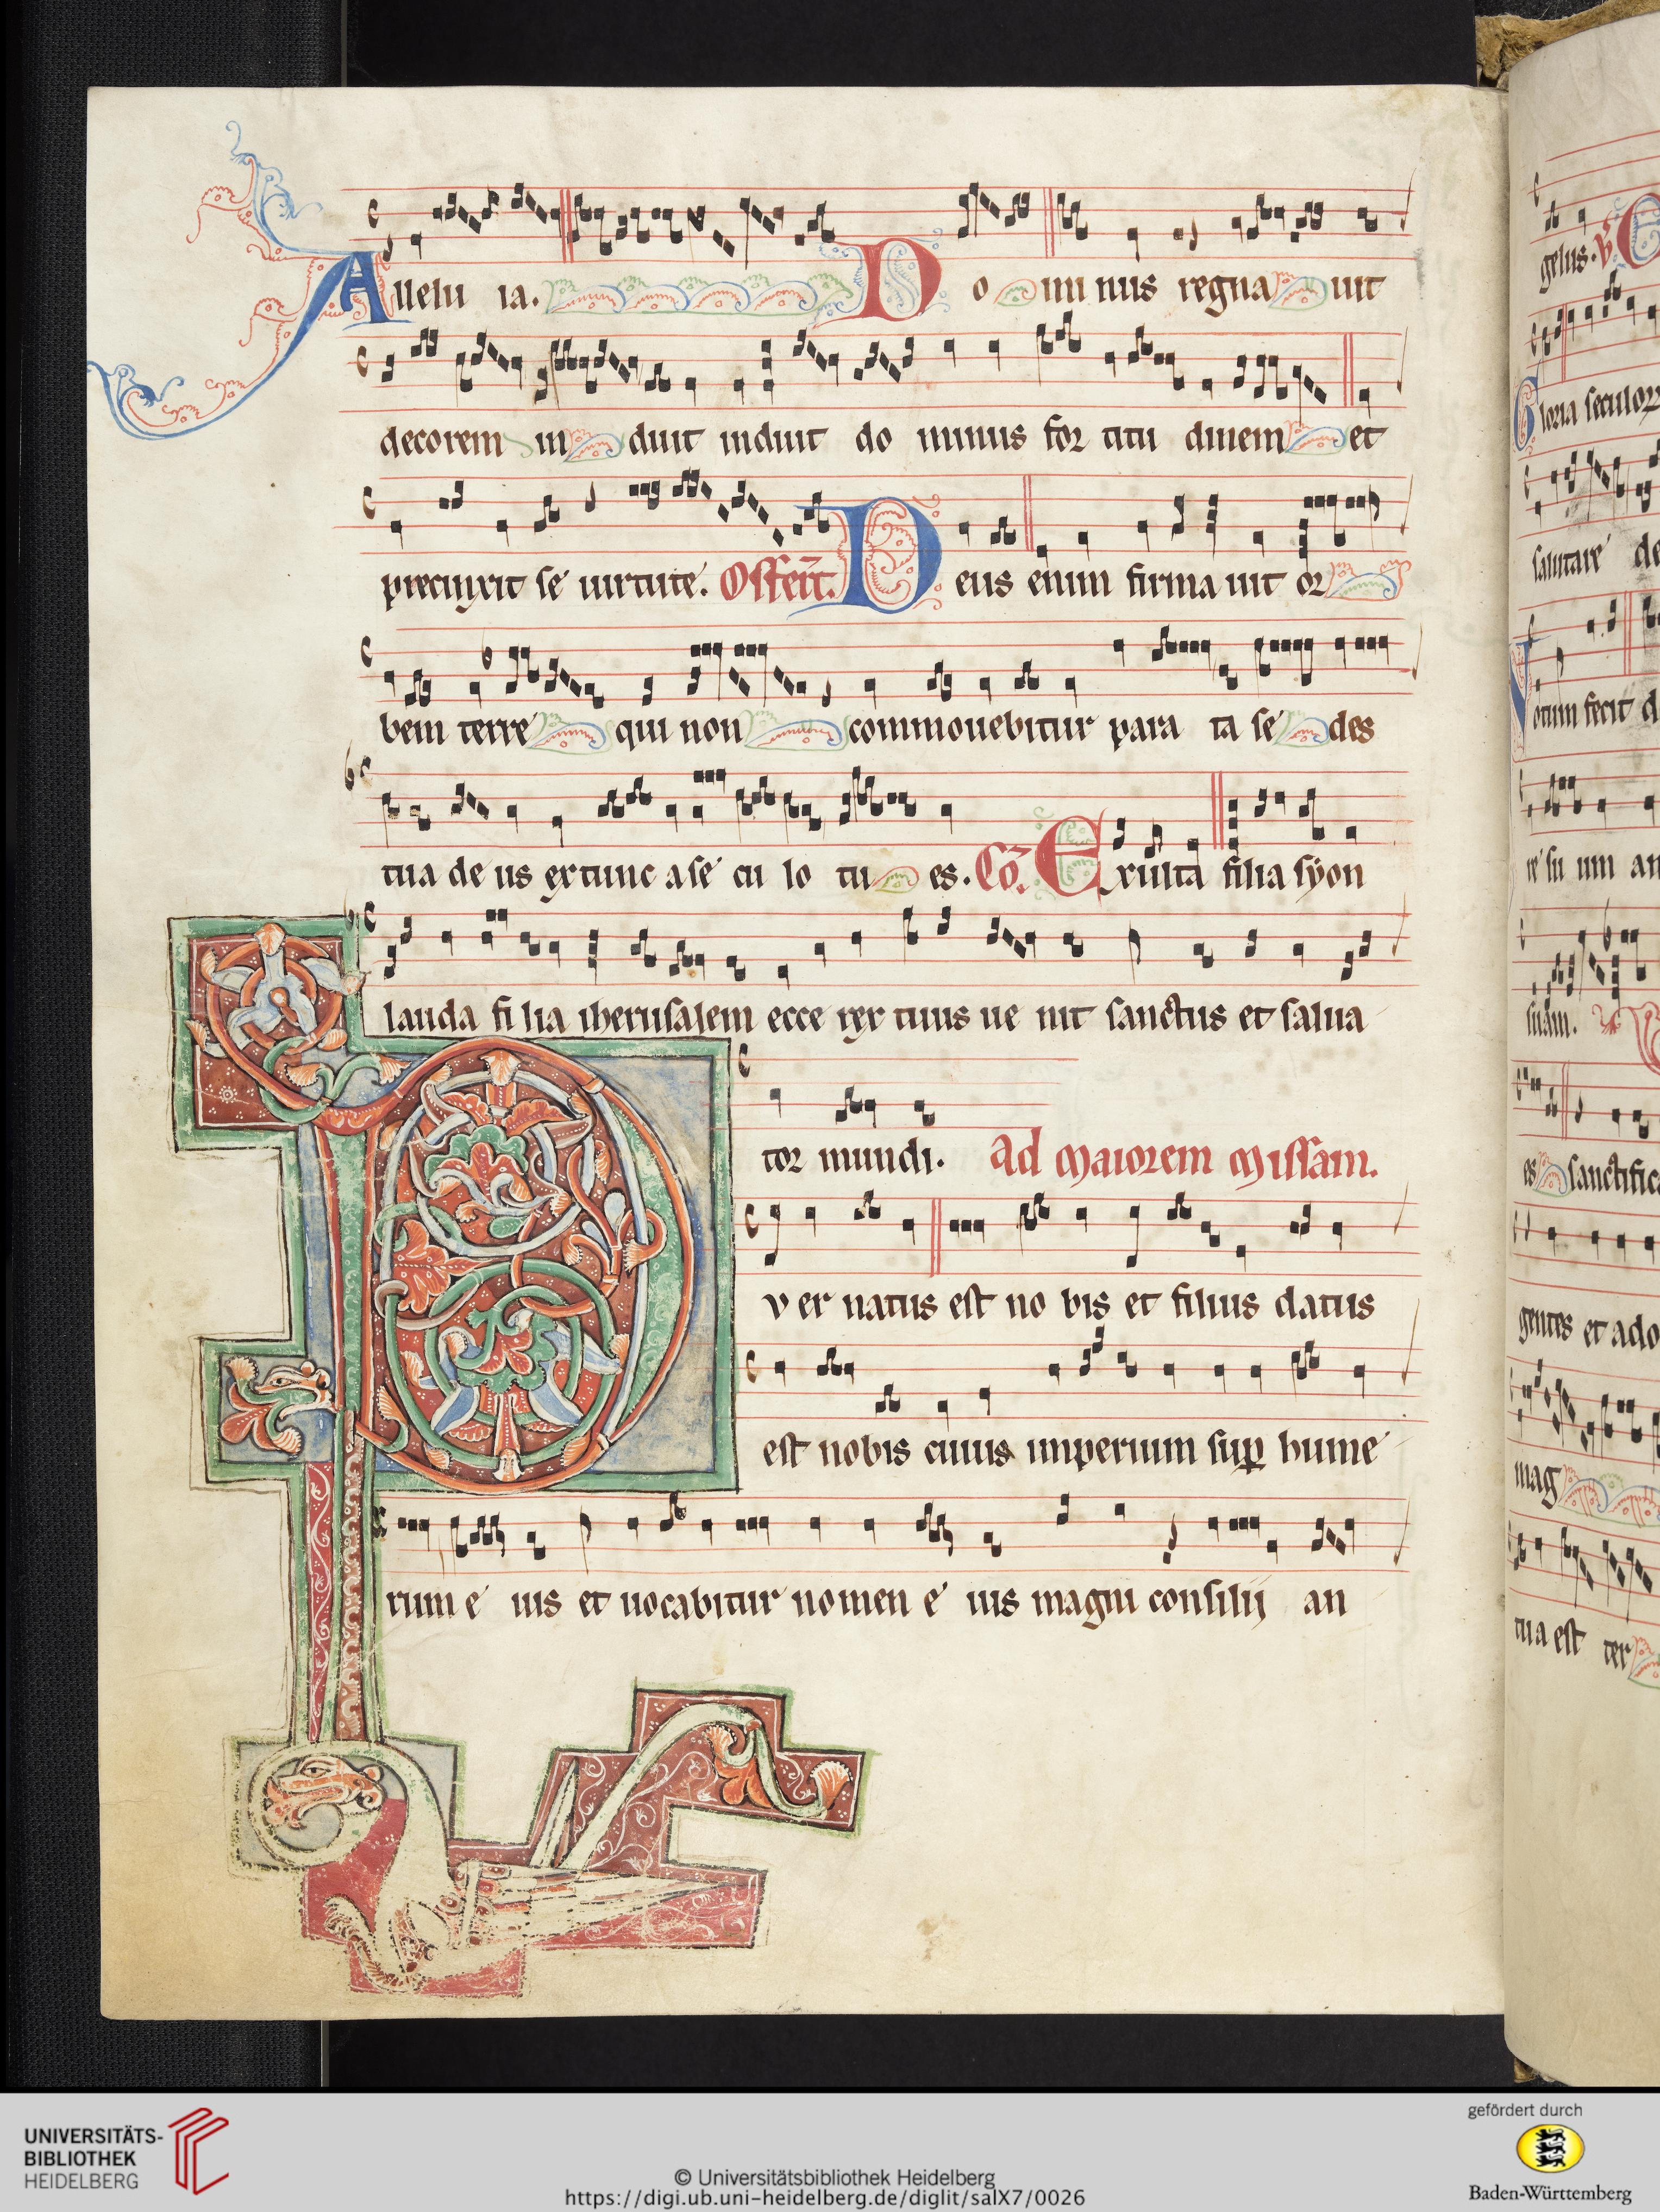 Allelu ia. D o mi nus regna uit
decorem in duit induit do minus for titu dinem et
precinxit se uirtute. Offert. Deus enim firma uit or
bem terre qui non commouebitur para ta se des
tua de us ex tunc a se cu lo tu es. Cō. Exulta filia syon
lauda fi lia iherusalem ecce rex tuus ue nit sanctus et salua
tor mundi. Ad Maiorem Missam.
P v er natus est no bis et filius datus
est nobis cuius imperium sup hume
rum e ius et uocabitur nomen e ius magni consilij an
gelus. V
Gloria seculor
salutare de
Notum fecit d
re su um an
suam.
es sanctific
gentes et ado
mag
tua est ter
UNIVERSITÄTS-
BIBLIOTHEK
HEIDELBERG
© Universitätsbibliothek Heidelberg
https://digi.ub.uni-heidelberg.de/diglit/salX7/0026
gefördert durch
Baden-Württemberg